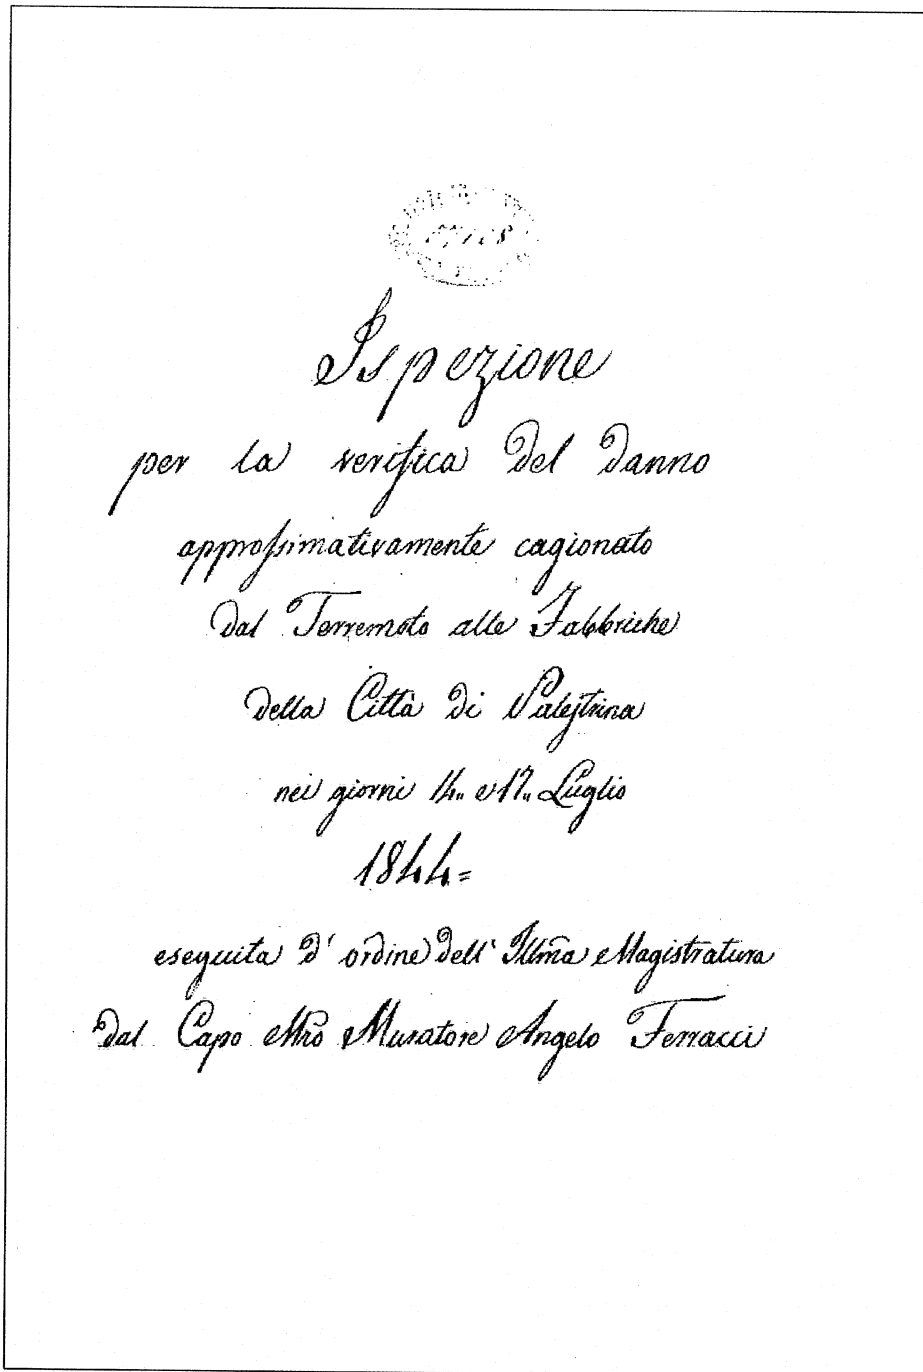 Ispezione
per la verifica del danno
approssimativamente cagionato
dal Terremoto alle Fabbriche
della Città di Palestrina
nei giorni 14„ e 17„ Luglio
1844=
eseguita d' ordine dell' Illma Magistratura
dal Capo Mro Muratore Angelo Ferracci